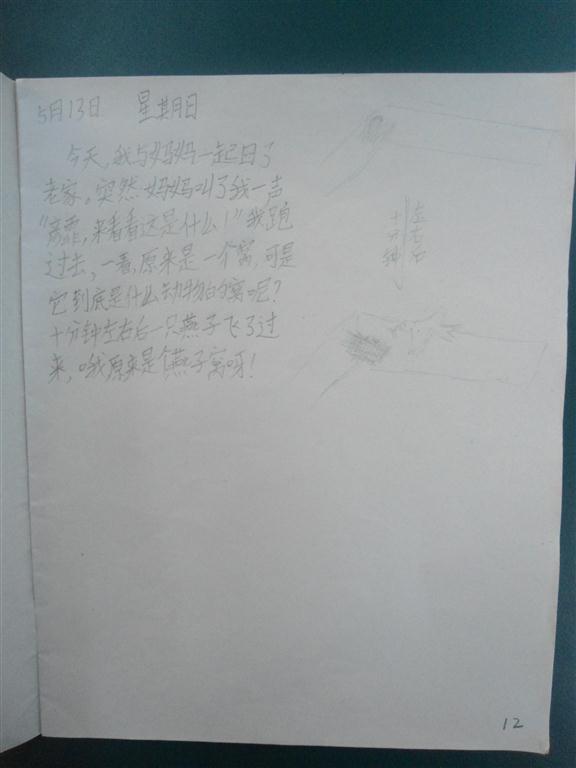 5月13日 星期日
今天,我与妈妈一起回了
老家。突然妈妈叫了我一声
"高霏,来看看这是什么!"我跑
过去,一看,原来是一个窝,可是
它到底是什么动物的窝呢?
十分钟左右后一只燕子飞了过
来,哦原来是个燕子窝呀!
十分钟
左右后
12